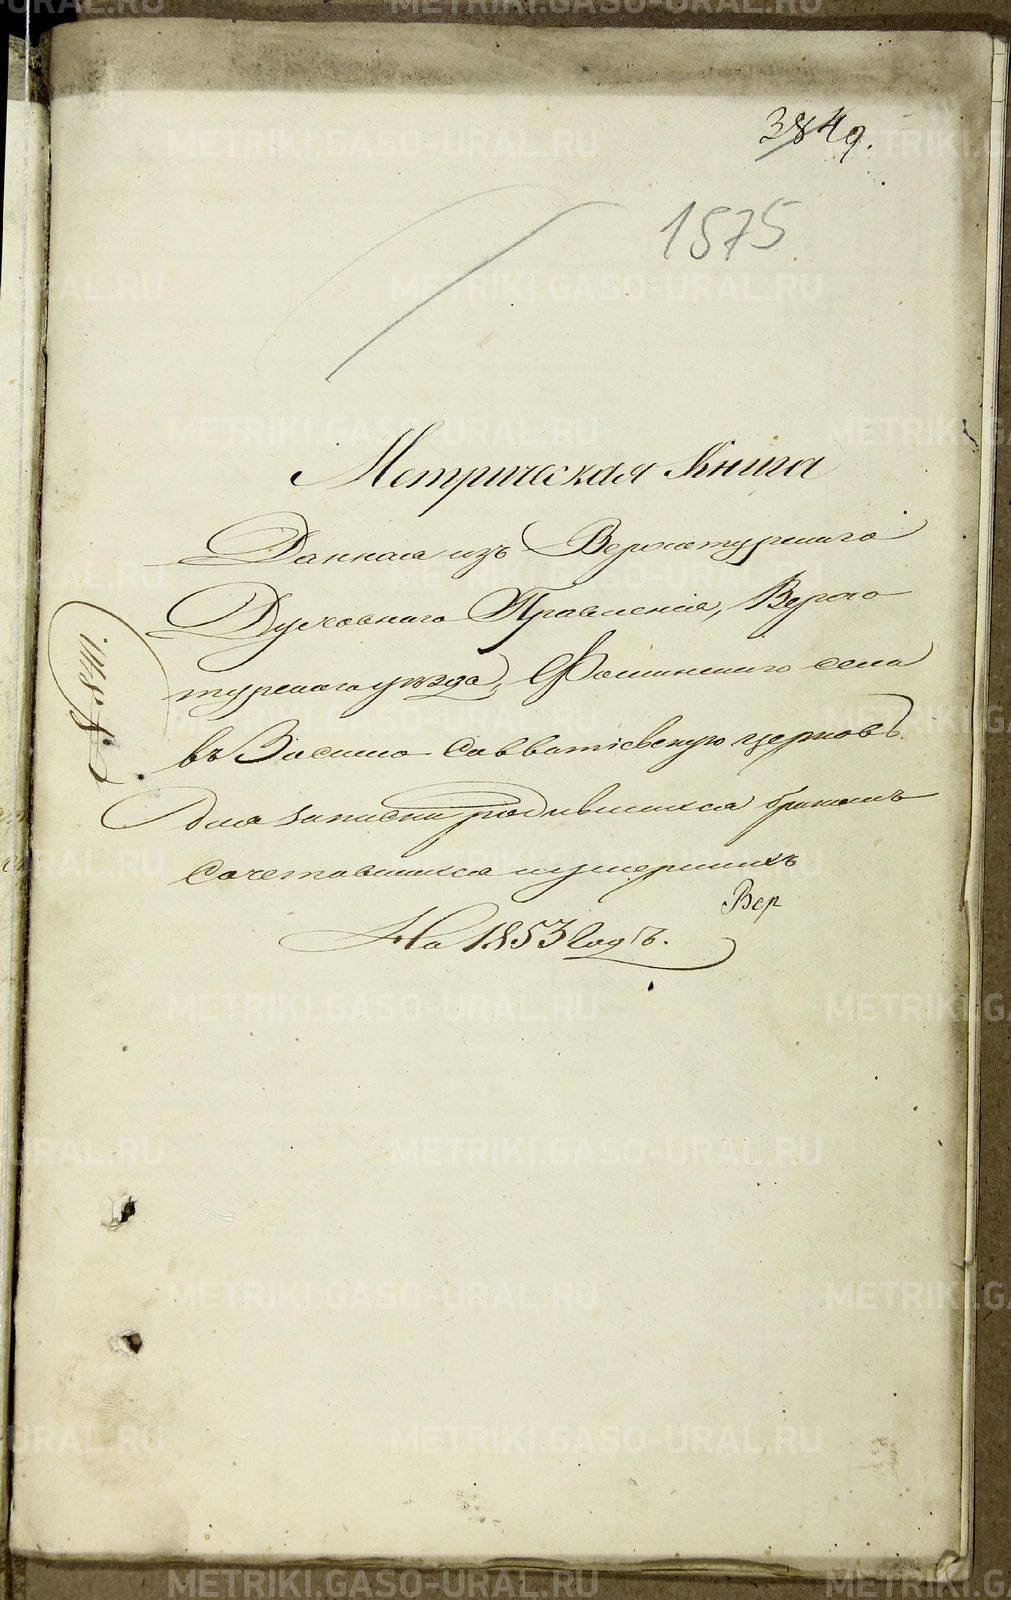 1575
Метрическая Книга
Данная изъ Верхотурскаго
Духовнаго Правленія, Верхо
турскаго уѣзда, Фоминскаго села
въ Зосимо Савватіевскую церковь.
для записки родившихся бракомъ
сочетавшихся и умершихъ
Вер
На 1853 годъ.
METRIKI.GASO-URAL.RU